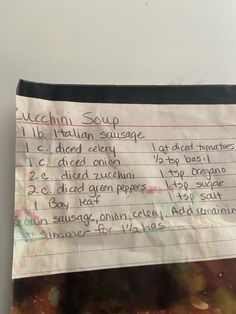 Zucchini Soup
1 lb. Italian sausage
1 c. diced celery 1 qt diced tomatoes
1 c. diced onion 1/2 tsp basil
2 c. diced zucchini 1 tsp oregano
2 c. diced green peppers 1 tsp sugar
1 Bay leaf 1 tsp salt
Brown sausage, onion, celery. Add remainin
simmer for 1 1/2 hrs.